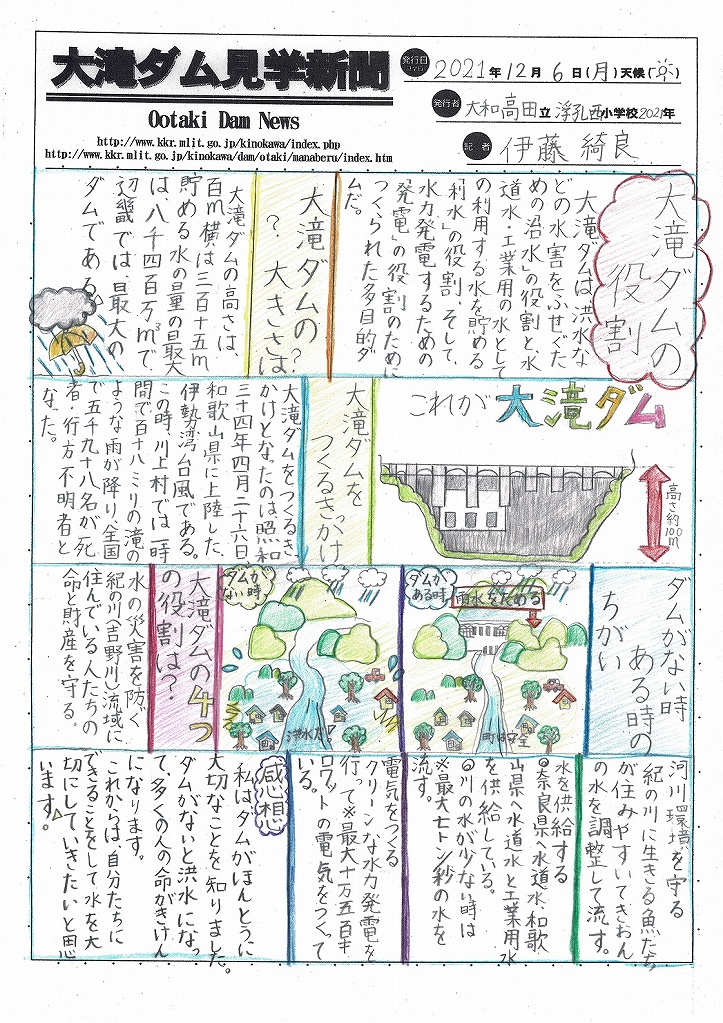 大滝ダム見学新聞
Ootaki Dam News
http://www.kkr.mlit.go.jp/kinokawa/index.php
http://www.kkr.mlit.go.jp/kinokawa/dam/otaki/manaberu/index.htm
発行日
2021年12月6日(月)天候( )
発行者 大和高田立浮孔西小学校2021年
記者 伊藤綺良
大滝ダムの
役割
大滝ダムは、洪水な
どの水害をふせぐた
めの沼水」の役割と、水
道水・工業用の水として
の利用する水を貯める
利水」の役割、そして、
水力発電するための
発電」の役割のために
つくられた多目的ダ
ムだ。
大滝ダムの?
? 大きさは
大滝ダムの高さは
百m横は三百十五m
貯める水の量の最大
は、八千四百万m³で、
辺畿では、最大の
ダムである。
これが大滝ダム
高さ約100m
大滝ダムを
つくるきっかけ
大滝ダムをつくるき、
かけとなったのは、昭和
三十四年四月二十六日、
和歌山県に上陸した、
伊勢湾台風である。
この時、川上村では一時
間で百十八ミリの滝の
ような雨が降り、全国
で五千九十八名が死
者・行方不明者と
なった。
ダムがない時
ある時の
ちがい
ダムが
ある時
雨水をためる
町は安全
ダムが
ない時
洪水だ!
大滝ダムの4つ
の役割は?
水の災害を防ぐ
紀の川(吉野川)流域に
住んでいる人たちの
命と財産を守る。
河川環境を守る
紀の川に生きる魚たち
が住みやすいてきおん
の水を調整して流す。
水を供給する
奈良県へ水道水、和歌
山県へ水道水と工業用水
を供給している。
川の水が少ない時は
※最大七トン/秒の水を
流す。
電気をつくる
クリーンな水力発電を
行って※最大十万五百キ
ロワットの電気をつくって
いる。
感想
私はダムがほんとうに
大切なことを知りました。
ダムがないと洪水になっ
て、多くの人の命がきけん
になります。
これからは、自分たちに
できることをして水を大
切にしていきたいと思
います。